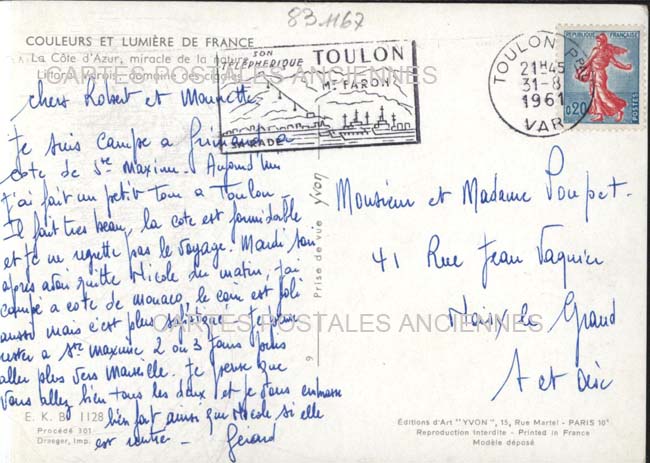 83.1167
COULEURS ET LUMIÈRE DE FRANCE
La Côte d'Azur, miracle de la nature
Littoral Varois, domaine des cigales
CARTES POSTALES ANCIENNES
SON
TÉLÉPHÉRIQUE
TOULON
Mt FARON
SA RADE
TOULON PPAL
21H45
31-8
1961
VAR
REPUBLIQUE FRANÇAISE
0,20
POSTES
chers Robert et Mauricette
Je suis campé a Grimaud, a
cote de Ste Maxime. Aujourd'hui
j'ai fait un petit tour a Toulon -
Il fait tres beau, la cote est formidable
et je ne regrette pas le voyage. Mardi soir
après avoir quitté Nicole du matin, j'ai
campé a cote de monaco, le coin est joli
aussi mais c'est plus
rester a Ste maxime 2 ou 3 jours puis
aller plus vers Marseille. Je pense que
vous allez bien tous les deux et je vous embrasse
bien fort ainsi que Nicole si elle
est rentrée - Gérard
Monsieur et Madame Poupet.
41 Rue Jean Vaquier
Noisy le Grand
S et Oise
CARTES POSTALES ANCIENNES
Prise de vue yvon
9
E. K. B. 1128
Procédé 301
Draeger, Imp.
Éditions d'Art "YVON", 15, Rue Martel - PARIS 10e
Reproduction interdite - Printed in France
Modèle déposé